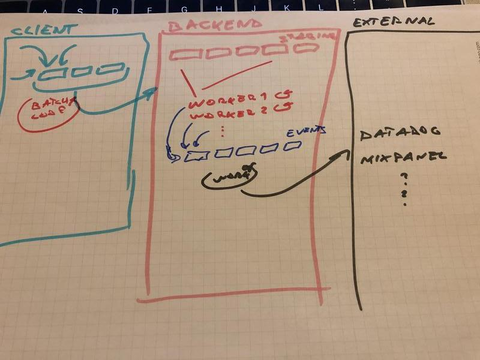 A S D F G H J K L
CLIENT
BATCH
BACKEND
WORKER 1
WORKER 2
EVENTS
EXTERNAL
DATADOG
MIXPANEL
?